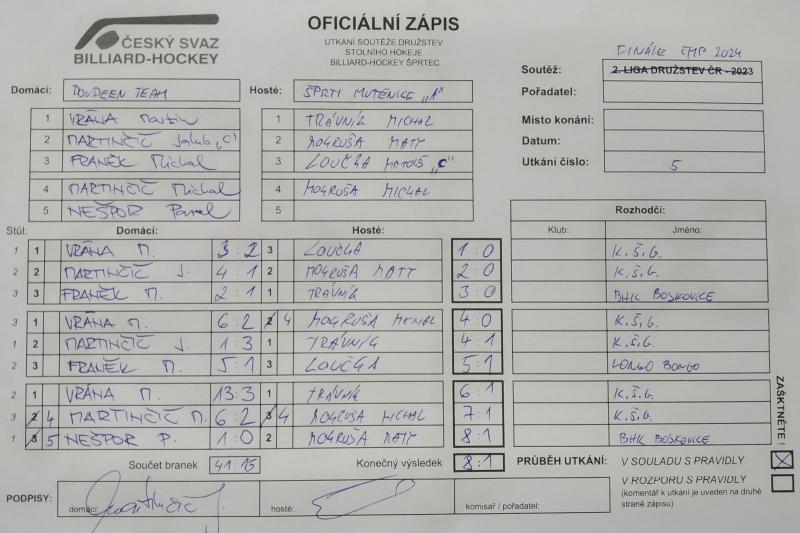 ČESKÝ SVAZ
BILLIARD-HOCKEY
OFICIÁLNÍ ZÁPIS
UTKÁNÍ SOUTĚŽE DRUŽSTEV
STOLNÍHO HOKEJE
BILLIARD-HOCKEY ŠPRTEC
FINÁLE ČMP 2024
Soutěž: 2. LIGA DRUŽSTEV ČR - 2023
Pořadatel:
Místo konání:
Datum:
Utkání číslo: 5
Domácí: DOUDEEN TEAM Hosté: ŠPRTI MUTĚNICE "A"
1 VRÁNA Martin 1 TRÁVNÍK MICHAL
2 MARTINČIČ Jakub "C" 2 MOGRUŠA MATY
3 FRANĚK Michal 3 LOUČGA MATOUŠ "C"
4 MARTINČIČ Michal 4 MOGRUŠA MICHAL
5 NEŠPOR Pavel 5
Stůl: Domácí: Hosté: Rozhodčí:
Klub: Jméno:
1 1 VRÁNA M. 3:2 3 LOUČGA 1:0 K.Š.G.
2 2 MARTINČIČ J. 4:1 2 MOGRUŠA MATY 2:0 K.Š.G.
3 3 FRANĚK M. 2:1 1 TRÁVNÍK 3:0 BHK BOSKOVICE
3 1 VRÁNA M. 6:2 2 4 MOGRUŠA MICHAL 4:0 K.Š.G.
1 2 MARTINČIČ J. 1:3 1 TRÁVNÍG 4:1 K.Š.G.
2 3 FRANĚK M. 5:1 3 LOUČGA 5:1 LONGO BONGO
2 1 VRÁNA M. 13:3 1 TRÁVNÍK 6:1 K.Š.G.
3 2 4 MARTINČIČ M. 6:2 3 4 MOGRUŠA MICHAL 7:1 K.Š.G.
1 3 5 NEŠPOR P. 1:0 2 MOGRUŠA MATY 8:1 BHK BOSKOVICE
ZAŠKTNĚTE!
Součet branek 41:15 Konečný výsledek 8:1 PRŮBĚH UTKÁNÍ: V SOULADU S PRAVIDLY X
V ROZPORU S PRAVIDLY
(komentář k utkání je uveden na druhé
straně zápisu)
PODPISY: domácí: hosté: komisař / pořadatel: